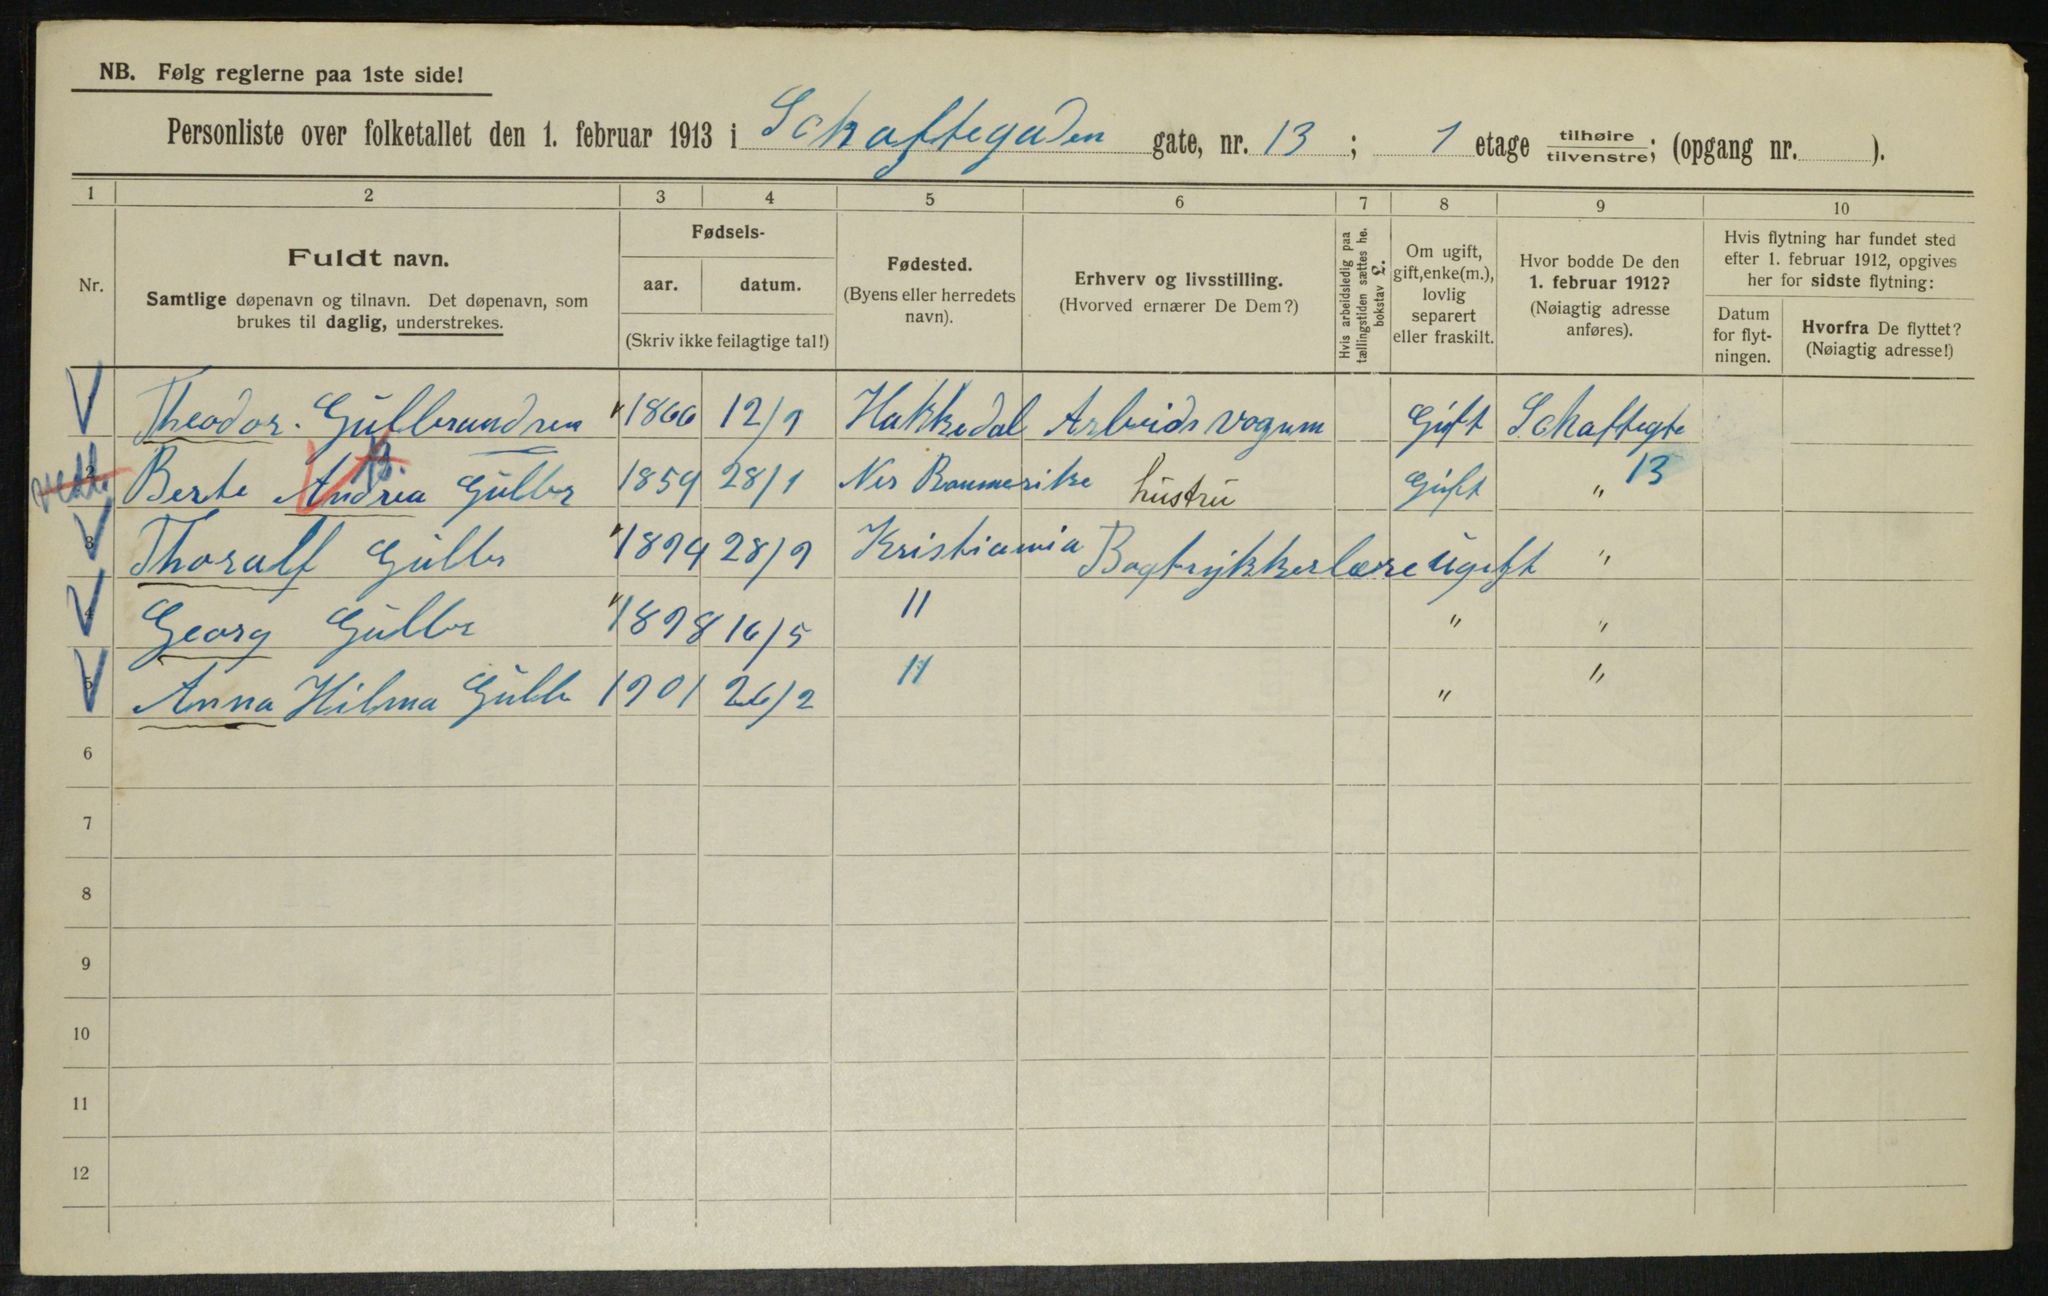 NB. Følg reglerne paa 1ste side!
Personliste over folketallet den 1. februar 1913 i Schaftegaden gate, nr. 13 ; 1 etage tilhøire/tilvenstre; (opgang nr. ).
1 2 3 4 5 6 7 8 9 10
Nr.
Fuldt navn.
Samtlige døpenavn og tilnavn. Det døpenavn, som
brukes til daglig, understrekes.
Fødsels-
aar. datum.
(Skriv ikke feilagtige tal!)
Fødested.
(Byens eller herredets
navn).
Erhverv og livsstilling.
(Hvorved ernærer De Dem?)
Hvis arbeidsledig paa
tællingstiden sættes he.
bokstav L.
Om ugift,
gift, enke(m.),
lovlig
separert
eller fraskilt.
Hvor bodde De den
1. februar 1912?
(Nøiagtig adresse
anføres).
Hvis flytning har fundet sted
efter 1. februar 1912, opgives
her for sidste flytning:
Datum
for flyt-
ningen.
Hvorfra De flyttet?
(Nøiagtig adresse!)
Theodor. Gullbrandsen 1866 12/9 Hakkedal Arbeidsvogum Gift Schaftegte
2 Berte Andrea Gullbr 1859 28/1 Nes Roumerike hustru Gift " 13
3 Thoralf Gullbr 1894 28/9 Kristiania Bogtrykkerlære Ugift "
4 Georg Gullbr 1898 16/5 " " "
5 Anna Hilma Gullb 1901 26/2 " " "
6
7
8
9
10
11
12